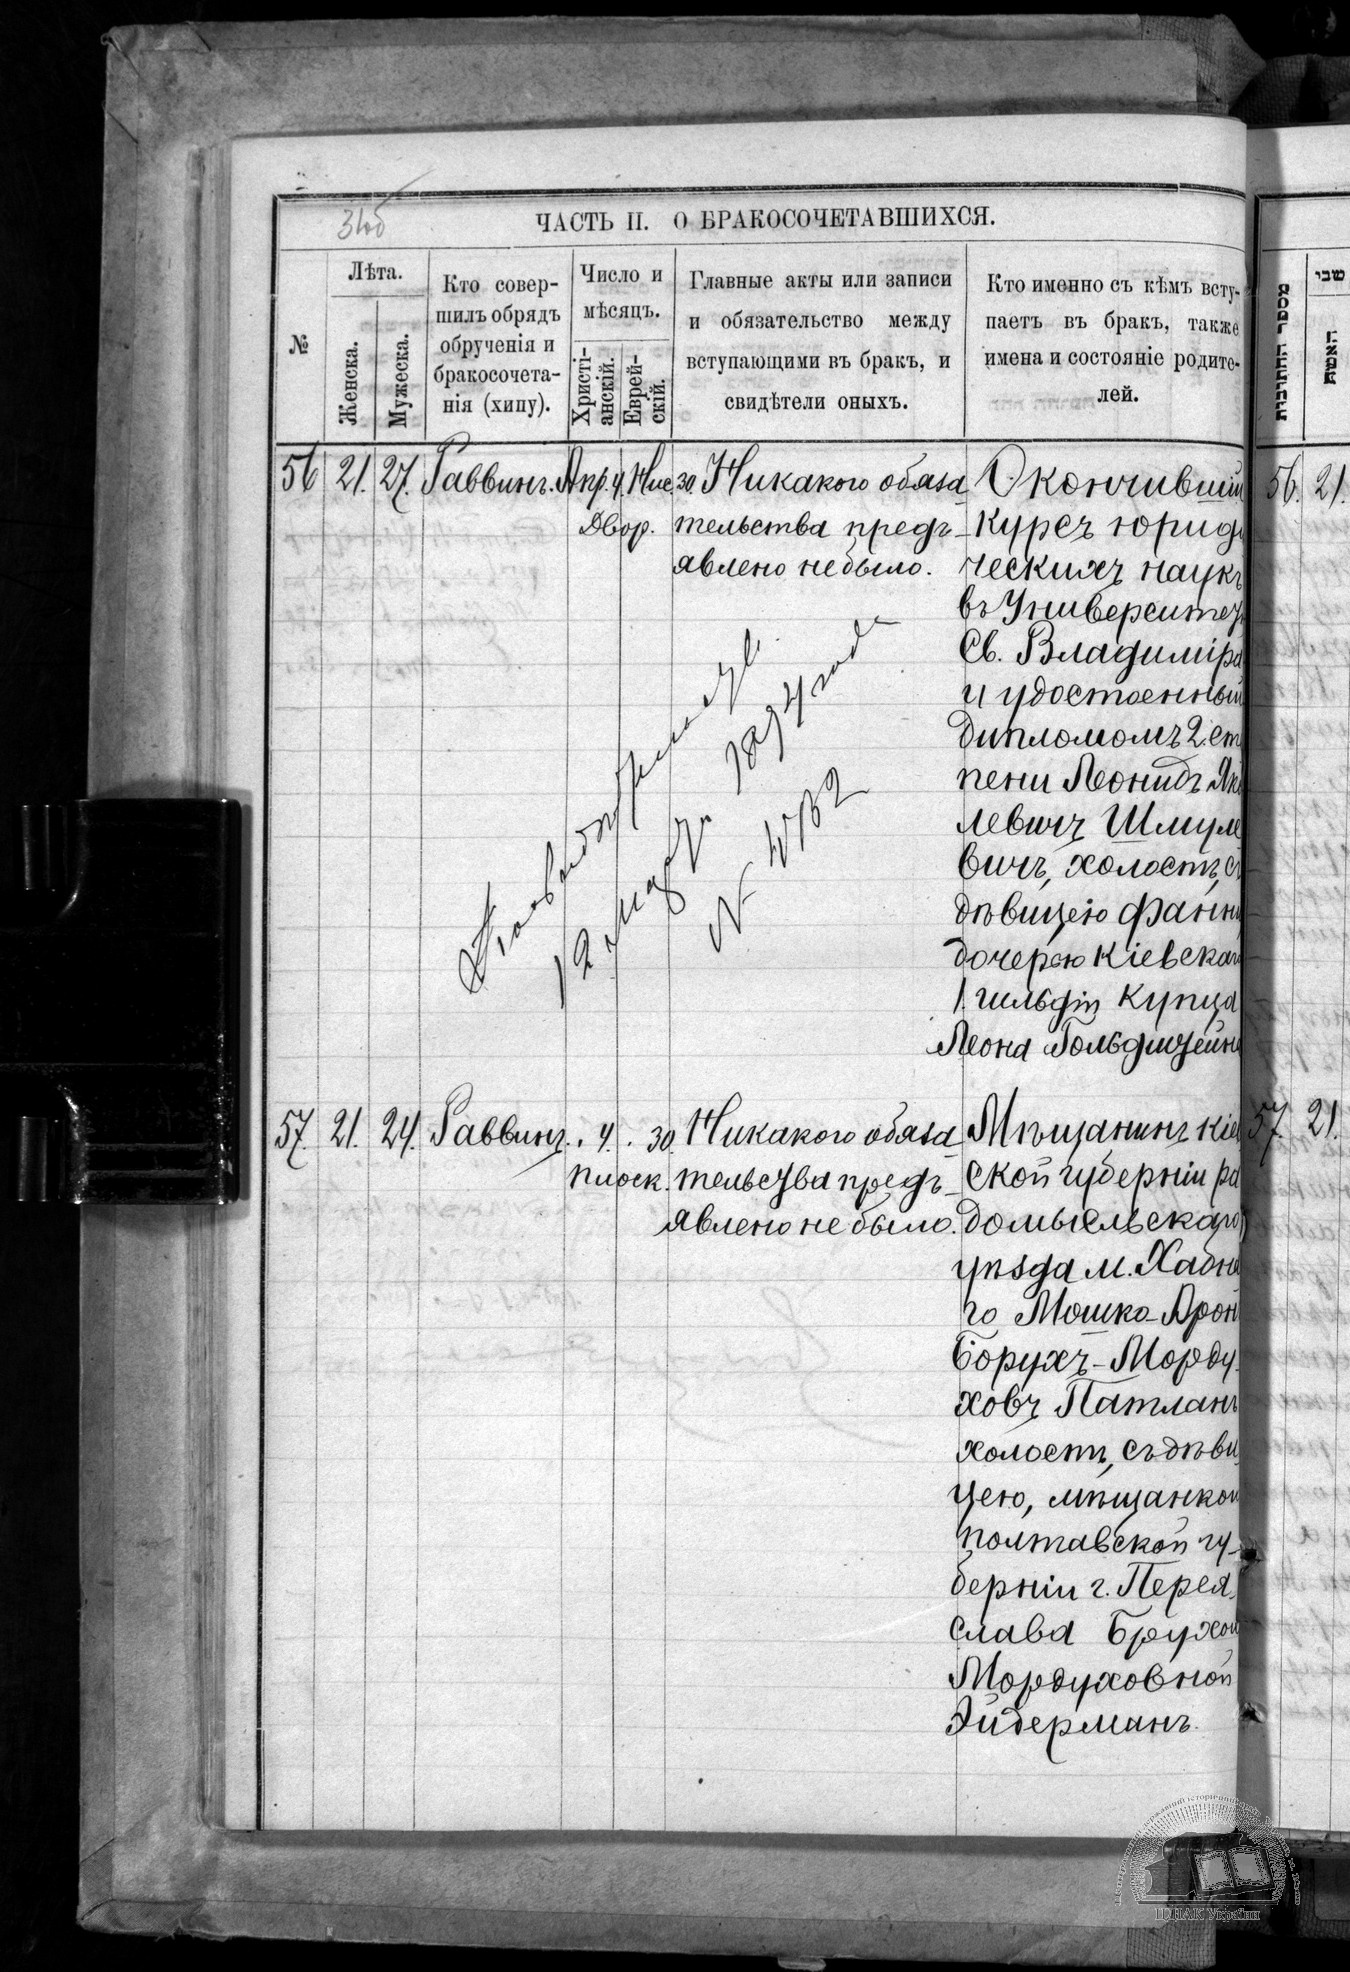 31об
ЧАСТЬ II. О БРАКОСОЧЕТАВШИХСЯ.
№
Лѣта.
Женска.
Мужеска.
Кто совер-
шилъ обрядъ
обрученія и
бракосочета-
нія (хипу).
Число и
мѣсяцъ.
Христі-
анскій.
Еврей-
скій.
Главные акты или записи
и обязательство между
вступающими въ бракъ, и
свидѣтели оныхъ.
Кто именно съ кѣмъ всту-
паетъ въ бракъ, также
имена и состояніе родите-
лей.
56 21. 27. Раввинъ. Апр. 4. Нис. 30.
Двор.
Никакого обяза
тельства предъ-
явлено не было.
Окончившій
курсъ юриди
ческихъ наукъ
въ Университе
Св. Владиміра
и удостоенный
дипломомъ 2. ст
пени Леонидъ Як
левичъ Шмуле
вичъ, холостъ, съ
дѣвицею Фанни
дочерью Кіевскаго
1 гильдіи купца
Леона Гольдштейна
12 марта 1894 года
57. 21. 24. Раввинъ. 4. 30.
Плоск.
Никакого обяза
тельства предъ-
явлено не было.
Мѣщанинъ Кіев
ской губерніи Ра
домысльскаго
уѣзда м. Хабно
го Мошко-Арон
Борухъ-Морду-
ховъ Патланъ
холостъ, съ дѣви
цею, мѣщанкой
Полтавской гу-
берніи г. Перея-
слава Брухой
Мордуховной
Эйдерманъ.
מספר הנקבות
שני
האשה
56. 21.
57. 21.
ЦДІАК України